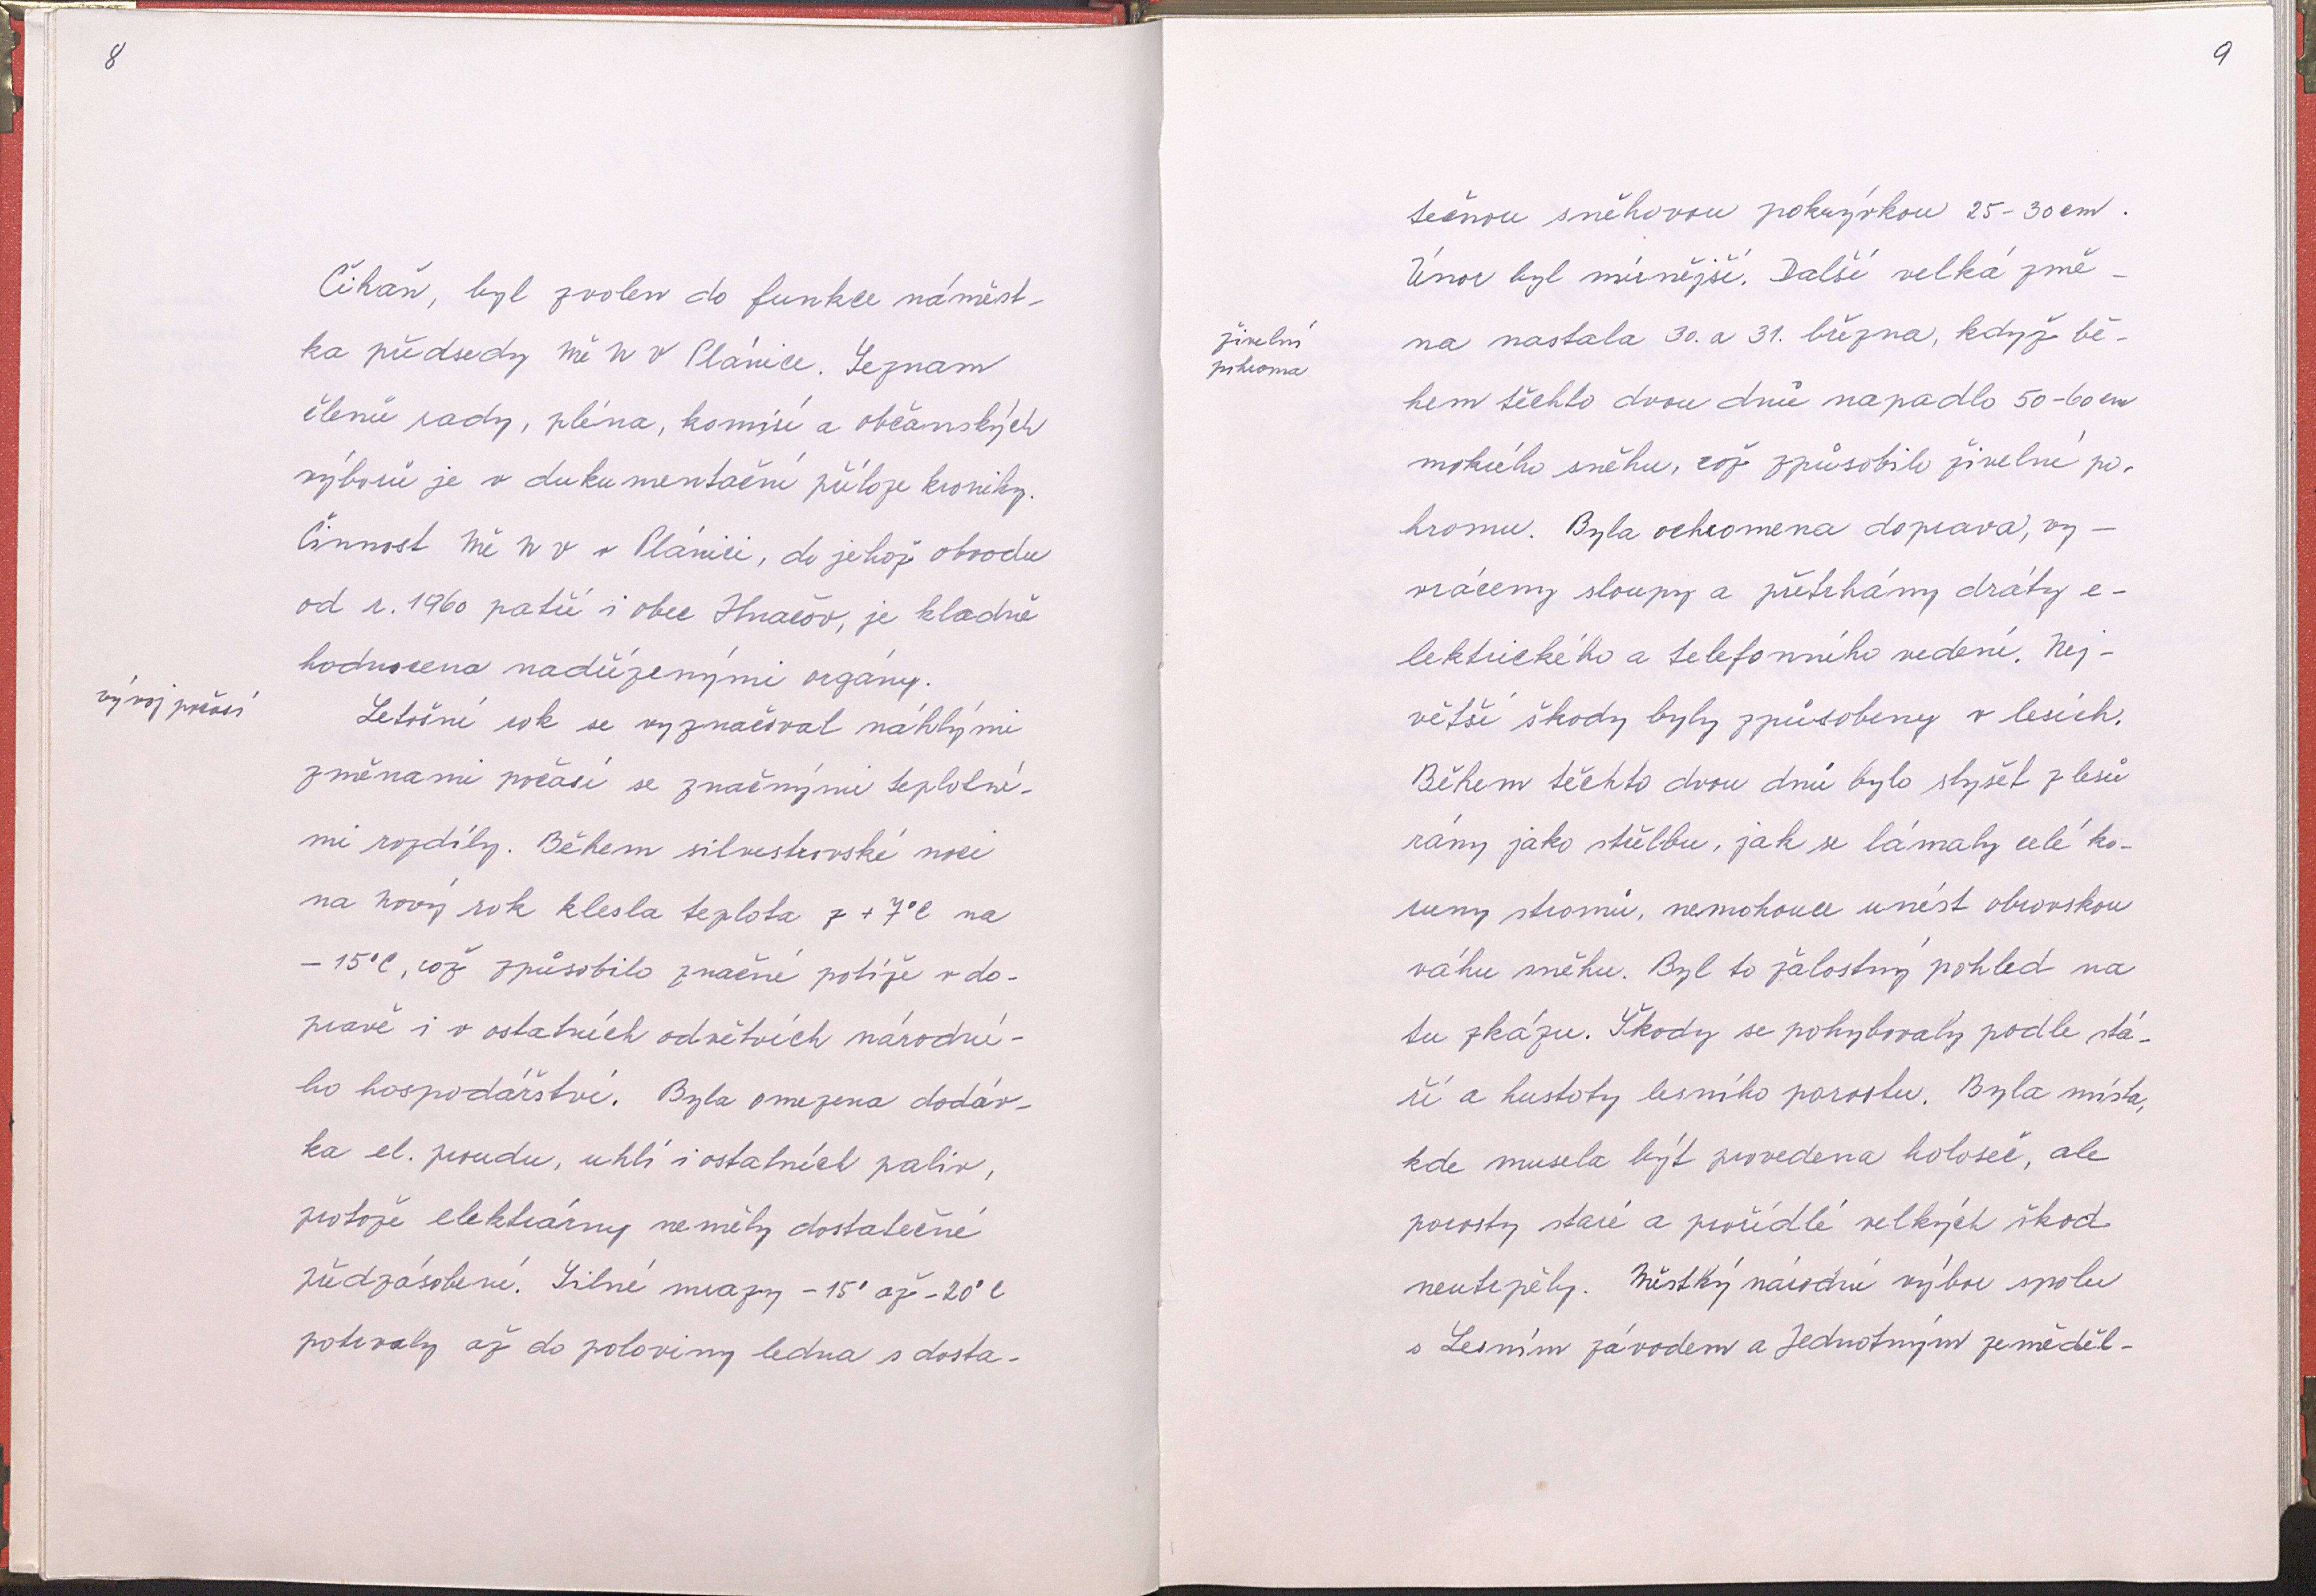 8
Číhaň, byl zvolen do funkce náměst-
ka předsedy MěNV Plánice. Seznam
členů rady, pléna, komisí a občanských
výborů je v dukumentační příloze kroniky.
Činnost MěNV v Plánici, do jehož obvodu
od r. 1960 patří i obec Hnačov, je kladně
hodnocena nadřízenými orgány.
vývoj počasí
Letošní rok se vyznačoval náhlými
změnami počasí se značnými teplotní-
mi rozdíly. Během silvestrovské noci
na Nový rok klesla teplota z +7°C na
-15°C, což způsobilo značné potíže v do-
pravě i v ostatních odvětvích národní-
ho hospodářství. Byla omezena dodáv-
ka el. proudu, uhlí i ostatních paliv,
protože elektrárny neměly dostatečné
předzásobení. Silné mrazy -15° až -20°C
potrvaly až do poloviny ledna s dosta-
9
tečnou sněhovou pokrývkou 25-30cm.
Únor byl mírnější. Další velká změ-
živelní
pohroma
na nastala 30. a 31. března, když bě-
hem těchto dvou dnů napadlo 50-60cm
mokrého sněhu, což způsobilo živelní po-
hromu. Byla ochromena doprava, vy-
vráceny sloupy a přetrhány dráty e-
lektrického a telefonního vedení. Nej-
větší škody byly způsobeny v lesích.
Během těchto dvou dnů bylo slyšet z lesů
rány jako střelbu, jak se lámaly celé ko-
runy stromů, nemohouce unést obrovskou
váhu sněhu. Byl to žalostný pohled na
tu zkázu. Škody se pohybovaly podle stá-
ří a hustoty lesního porostu. Byla místa,
kde musela být provedena holoseč, ale
porosty staré a prořídlé velkých škod
neutrpěly. Městký národní výbor spolu
s Lesním závodem a Jednotným zeměděl-